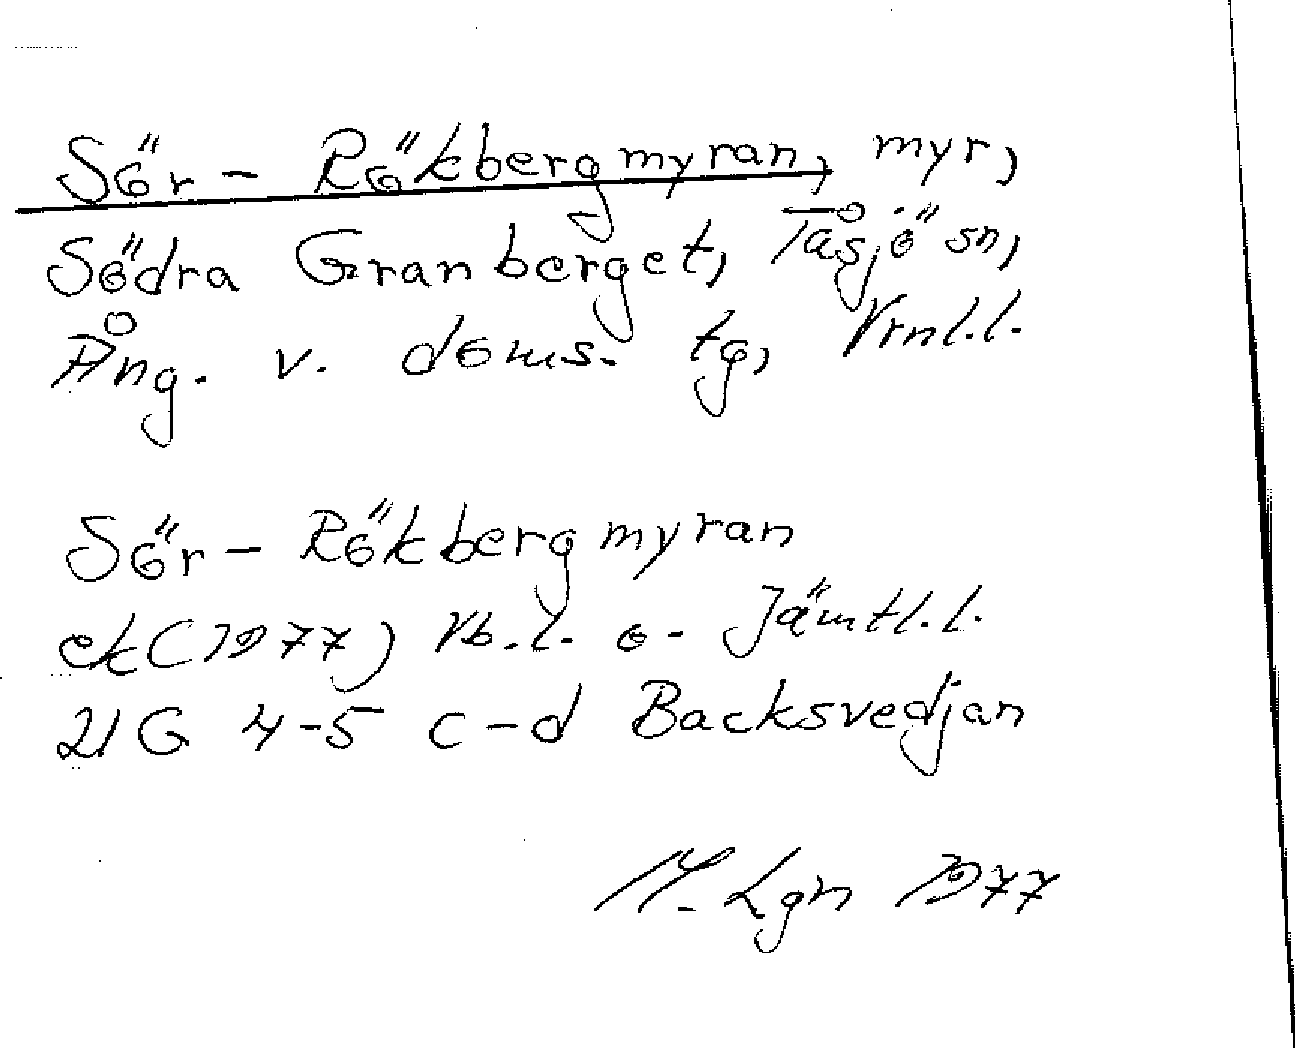 Sör-Rökbergmyran, myr,
Södra Granberget, Tåsjö sn,
Ång. v. doms. tg, Vrnl.l.
Sör-Rökbergmyran
ek(1977) Vb.l. o. Jämtl.l.
21G 4-5 c-d Backsvedjan
M. Lgn 1977